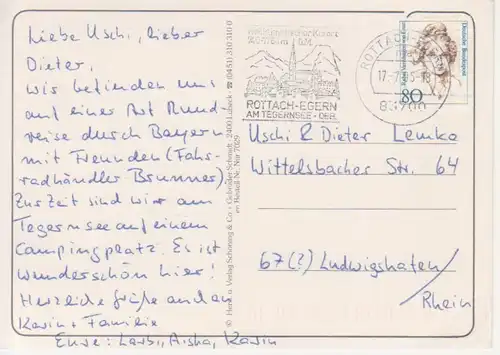 Liebe Uschi, lieber
Dieter,
wir befinden uns
auf einer Art Rund-
reise durch Bayern
mit Freunden (Fahr-
radhändler Brunner).
Zur Zeit sind wir am
Tegernsee auf einem
Campingplatz. Es ist
wunderschön hier!
Herzliche Grüße auch an
Karin + Familie
Eure: Larbi, Aisha, Karin
© Herst. u. Verlag Schöning & Co + Gebrüder Schmidt · 2400 Lübeck · ☎ (0451) 310 310
Heilklimatischer Kurort
ROTTACH-EGERN
AM TEGERNSEE - OBB.
ROTTACH
83700
Deutsche Bundespost
80
Uschi & Dieter Lemke
Wittelsbacher Str. 64
67(?) Ludwigshafen/
Rhein